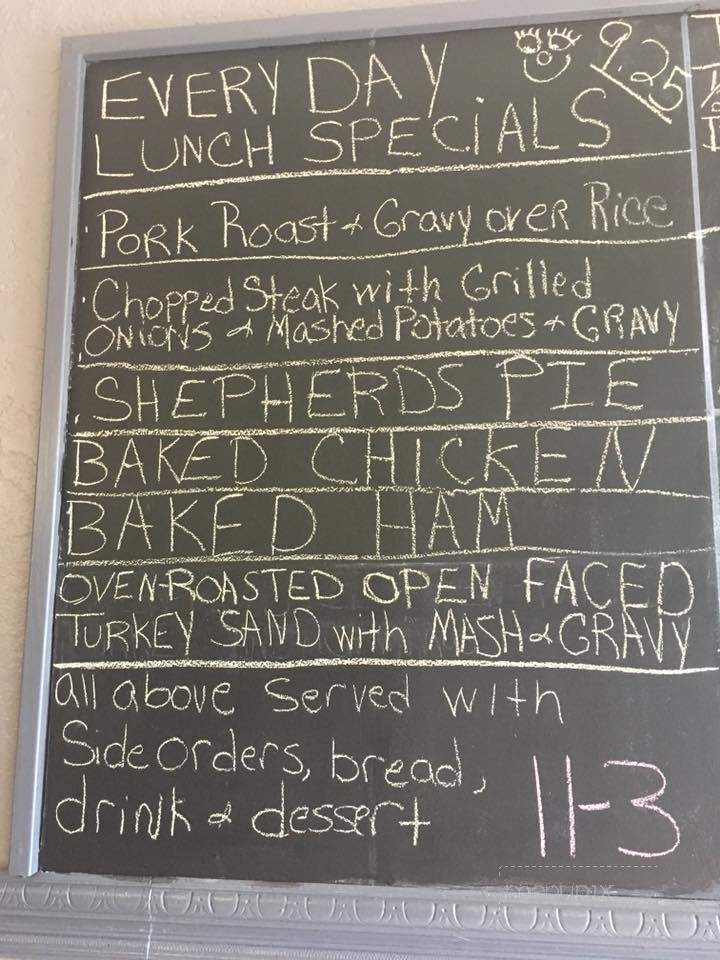 EVERY DAY 9.25
LUNCH SPECiALS
PORK Roast & Gravy over Rice
Chopped Steak with Grilled
ONIONS & Mashed Potatoes & GRAVY
SHEPHERDS PIE
BAKED CHICKEN
BAKED HAM
OVEN-ROASTED OPEN FACED
TURKEY SAND with MASH & GRAVY
all above Served with
Side Orders, bread,
drink & dessert
11-3